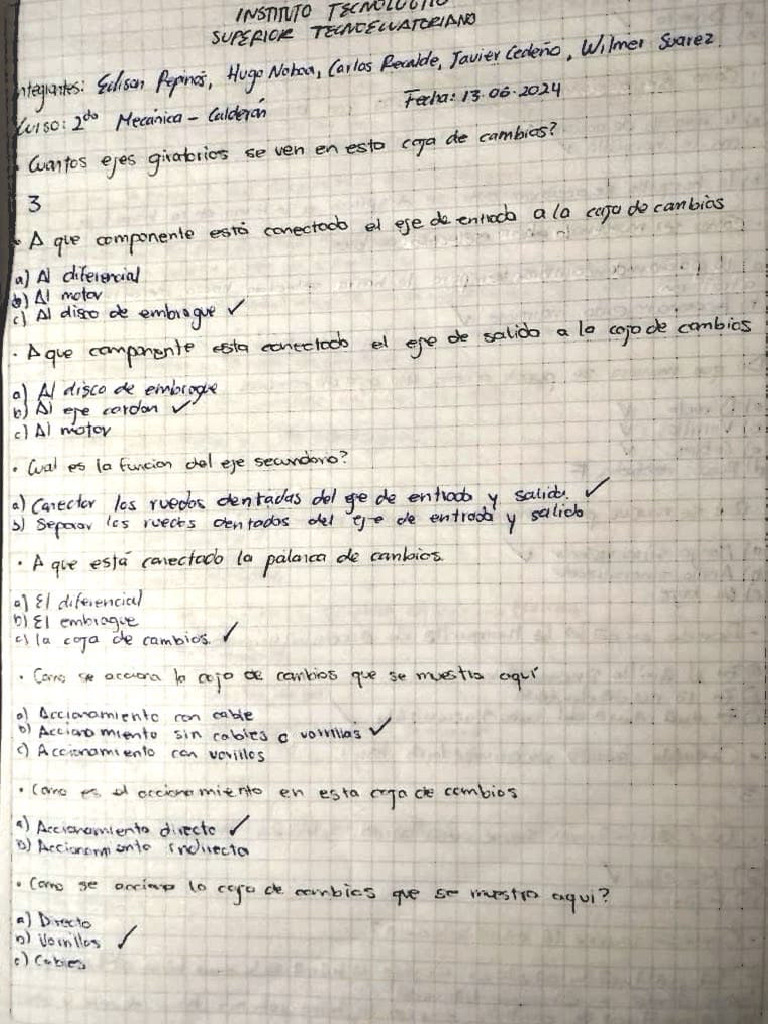 INSTITUTO TECNOLOGICO
SUPERIOR TECNOECUATORIANO
Integrantes: Edison Pepinos, Hugo Noboa, Carlos Recalde, Javier Cedeño, Wilmer Suarez
Curso: 2do Mecánica - Calderón Fecha: 13.06.2024
• Cuantos ejes giratorios se ven en esta caja de cambios?
3
• A que componente está conectado el eje de entrada a la caja de cambios
a) Al diferencial
b) Al motor
c) Al disco de embrague ✓
• A que componente esta conectado el eje de salida a la caja de cambios
a) Al disco de embrague
b) Al eje cardan ✓
c) Al motor
• Cual es la funcion del eje secundario?
a) Conectar las ruedas dentadas del eje de entrada y salida. ✓
b) Separar las ruedas dentadas del eje de entrada y salida
• A que está conectado la palanca de cambios.
a) El diferencial
b) El embrague
c) la caja de cambios. ✓
• Como se acciona la caja de cambios que se muestra aquí
a) Accionamiento con cable
b) Accionamiento sin cables o varillas ✓
c) Accionamiento con varillas
• Como es el accionamiento en esta caja de cambios
a) Accionamiento directo ✓
b) Accionamiento indirecta
• Como se acciona la caja de cambios que se muestra aqui?
a) Directo
b) Varillas ✓
c) Cables